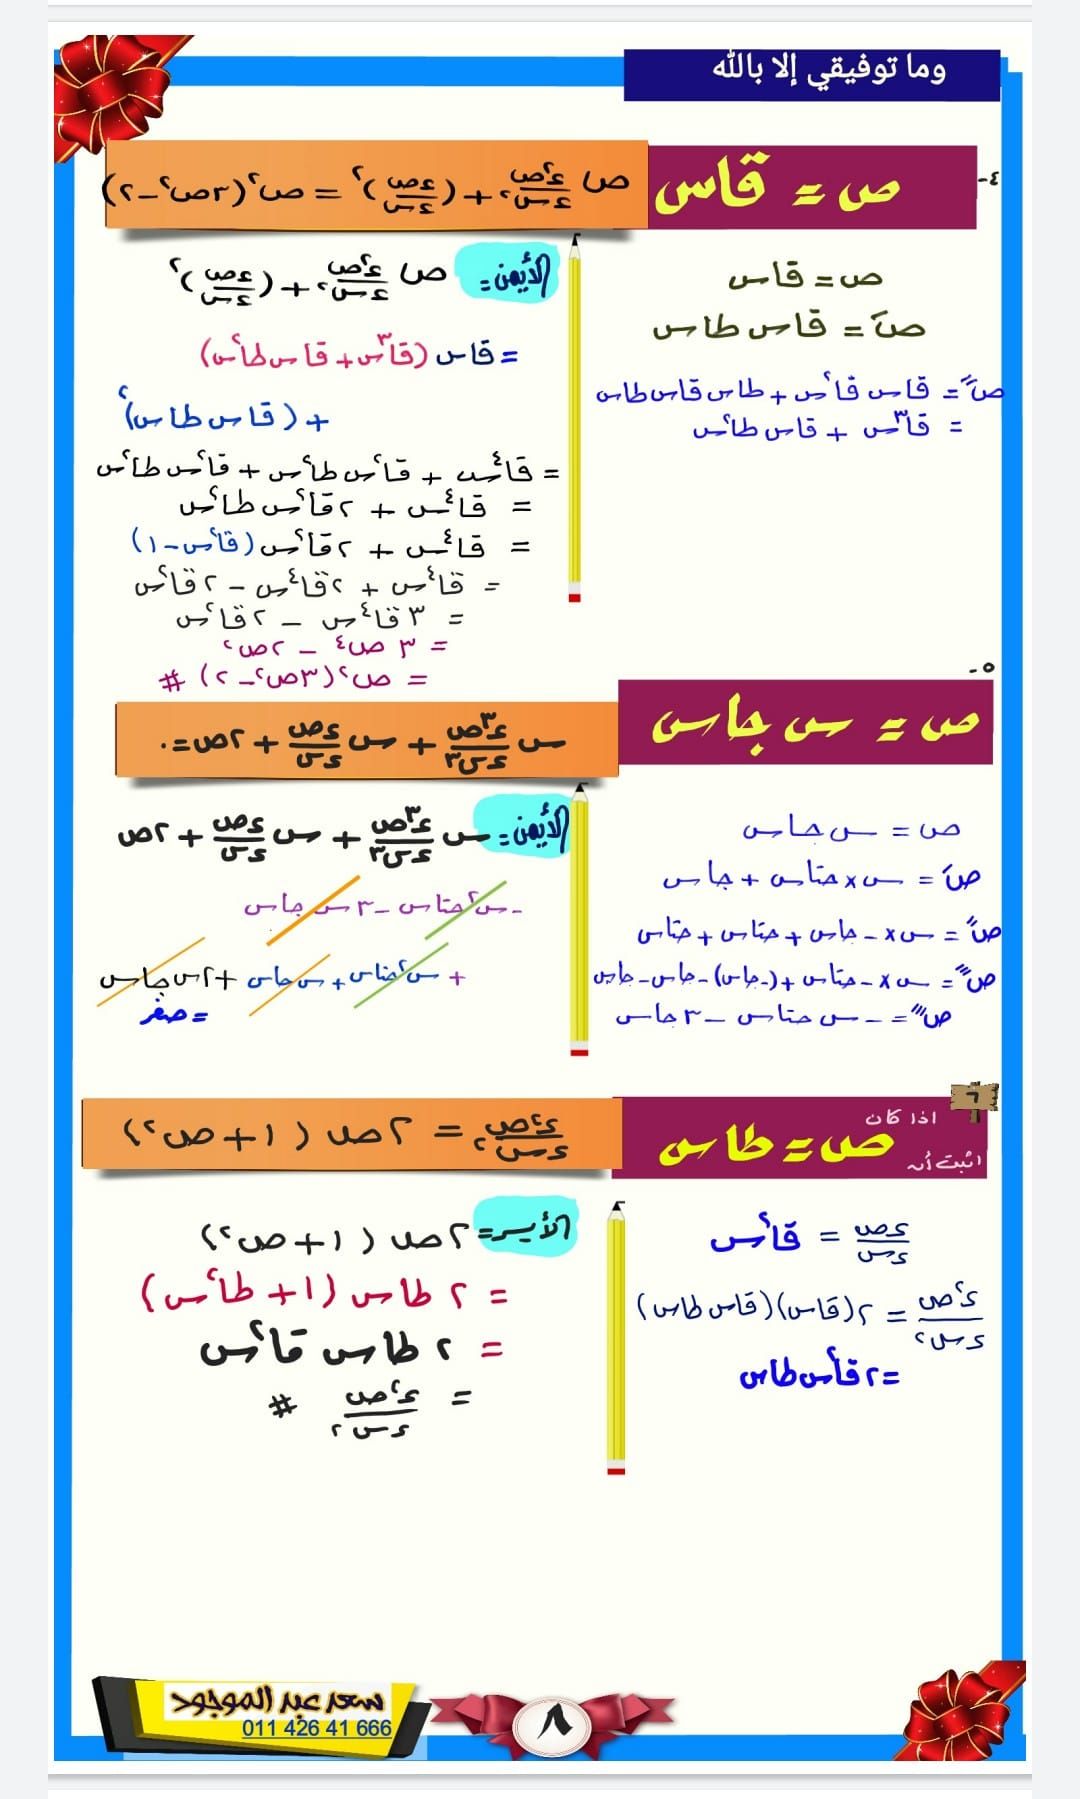 وما توفيقي إلا بالله
٤-
ص = قاس
ص ء٢ص/ءس٢ + (ءص/ءس)٢ = ص٢(٣ص٢ – ٢)
ص = قاس
صَ = قاس طاس
صً = قاس قا٢س + طاس قاس طاس
= قا٣س + قاس طا٢س
الأيمن = ص ء٢ص/ءس٢ + (ءص/ءس)٢
= قاس (قا٣س + قاس طا٢س)
+ (قاس طاس)٢
= قا٤س + قا٢س طا٢س + قا٢س طا٢س
= قا٤س + ٢قا٢س طا٢س
= قا٤س + ٢قا٢س (قا٢س – ١)
= قا٤س + ٢قا٤س – ٢قا٢س
= ٣قا٤س – ٢قا٢س
= ٣ص٤ – ٢ص٢
= ص٢(٣ص٢ – ٢) #
٥-
ص = س جاس
س ء٣ص/ءس٣ + س ءص/ءس + ٢ص = ٠
ص = س جاس
صَ = س × جتاس + جاس
صً = س × – جاس + جتاس + جتاس
صً = س × – جتاس + (– جاس) – جاس – جاس
صً = – س جتاس – ٣جاس
الأيمن = س ء٣ص/ءس٣ + س ءص/ءس + ٢ص
– س٢جتاس – ٣س جاس
+ س٢جتاس + س جاس + ٢س جاس
= صفر
٦
اذا كان ص = طاس
اثبت أن
ء٢ص/ءس٢ = ٢ص (١ + ص٢)
ءص/ءس = قا٢س
ء٢ص/ءس٢ = ٢(قاس)(قاس طاس)
= ٢قا٢س طاس
الأيسر = ٢ص (١ + ص٢)
= ٢ طاس (١ + طا٢س)
= ٢ طاس قا٢س
= ء٢ص/ءس٢ #
سعد عبد الموجود
011 426 41 666
٨